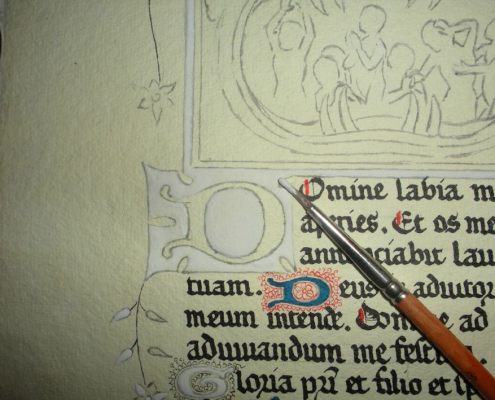 DOmine labia m
aperies. Et os me
annunciabit lau
tuam. Deus adiutor
meum intende. Domine ad
adiuuandum me festina.
Gloria pr̄i et filio et sp